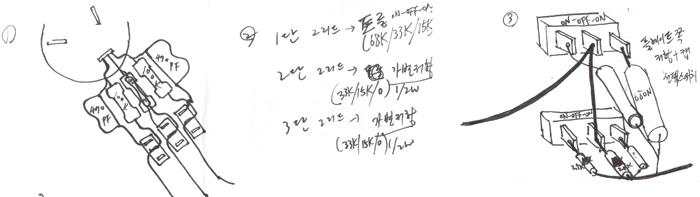 ①
470
PF
100K
100K
470
PF
②
1단 그리드 → 토글 ON-OFF-ON
(68K/33K/15K)
2단 그리드 → 가변저항
(33K/15K/0) 1/2W
3단 그리드 → 가변저항
(33K/15K/0) 1/2W
③
ON-OFF-ON
플레이트 쪽
저항+캡
선택스위치
680N
ON-OFF-ON